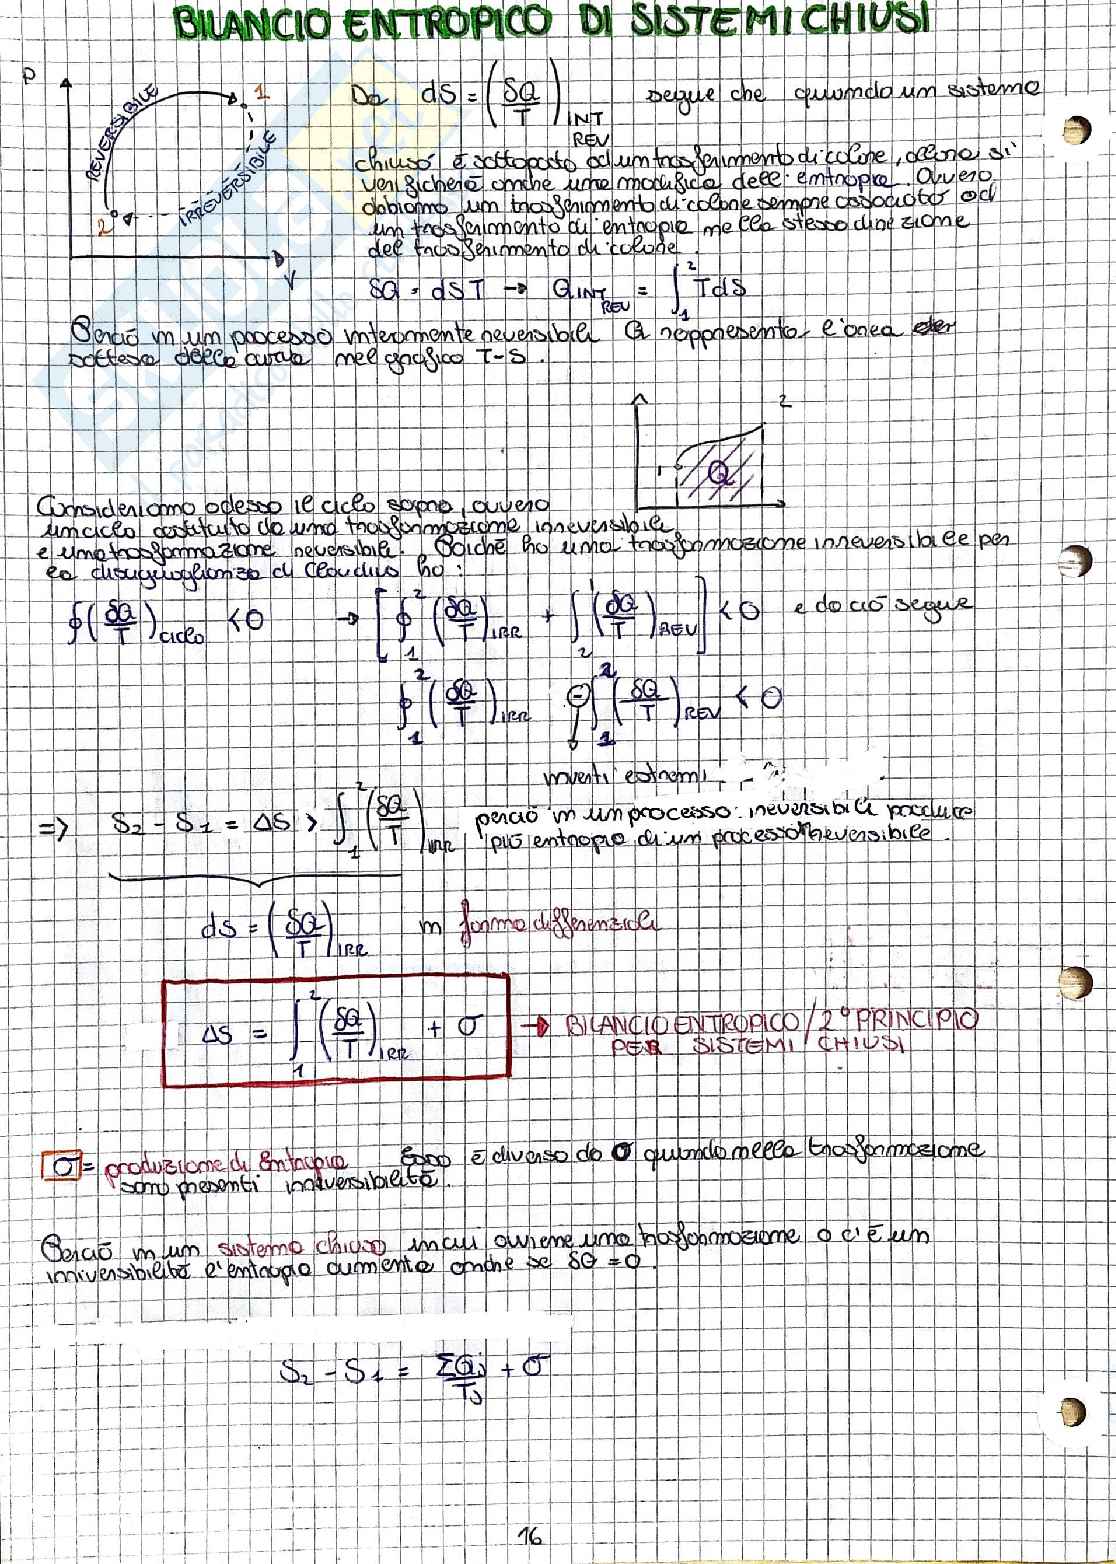 BILANCIO ENTROPICO DI SISTEMI CHIUSI
P
REVERSIBILE
1
IRREVERSIBILE
2
V
Da dS = (δQ/T) INT REV segue che quando un sistema
chiuso è sottoposto ad un trasferimento di calore, allora si
verificherà anche una modifica dell'entropia. Ovvero
abbiamo un trasferimento di calore sempre associato ad
un trasferimento di entropia nella stessa direzione
del trasferimento di calore.
δQ = dS T → Q INT REV = ∫₁² T dS
Perciò in un processo interamente reversibile Q rappresenta l'area
sottesa della curva nel grafico T-S.
2
1
Q
Consideriamo adesso il ciclo sopra, ovvero
un ciclo costituito da una trasformazione irreversibile
e una trasformazione reversibile. Poiché ho una trasformazione irreversibile per
la disuguaglianza di Claudius ho:
∮(δQ/T)ciclo < 0 → [∮₁² (δQ/T)IRR + ∫₂¹ (δQ/T)REV] < 0 e da ciò segue
∮₁² (δQ/T)IRR ⊖∫₁² (δQ/T)REV < 0
inverti estremi
=> S₂ - S₁ = ΔS > ∫₁² (δQ/T)IRR perciò in un processo irreversibile produce
più entropia di un processo reversibile.
dS = (δQ/T)IRR in forma differenziale
ΔS = ∫₁² (δQ/T)IRR + σ → BILANCIO ENTROPICO / 2° PRINCIPIO
PER SISTEMI CHIUSI
σ = produzione di Entropia Esso è diverso da 0 quando nella trasformazione
sono presenti irreversibilità.
Perciò in un sistema chiuso in cui avviene una trasformazione o c'è un
irriversibilità l'entropia aumenta anche se δQ = 0.
S₂ - S₁ = ΣQj/Tj + σ
16